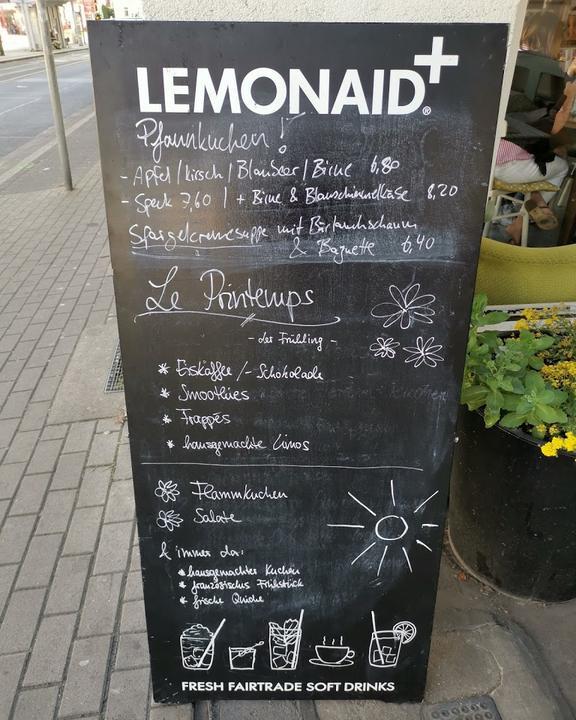 LEMONAID+®
Pfannkuchen!
- Apfel / Kirsch / Blaubeer / Birne 6,80
- Speck 7,60 | + Birne & Blauschimmelkäse 8,20
Spargelcremesuppe mit Bärlauchschaum
& Baguette 6,40
Le Printemps
- der Frühling -
* Eiskaffee /- Schokolade
* Smoothies
* Frappés
* hausgemachte Limos
Flammkuchen
Salate
& immer da:
* hausgemachter Kuchen
* französisches Frühstück
* frische Quiche
FRESH FAIRTRADE SOFT DRINKS